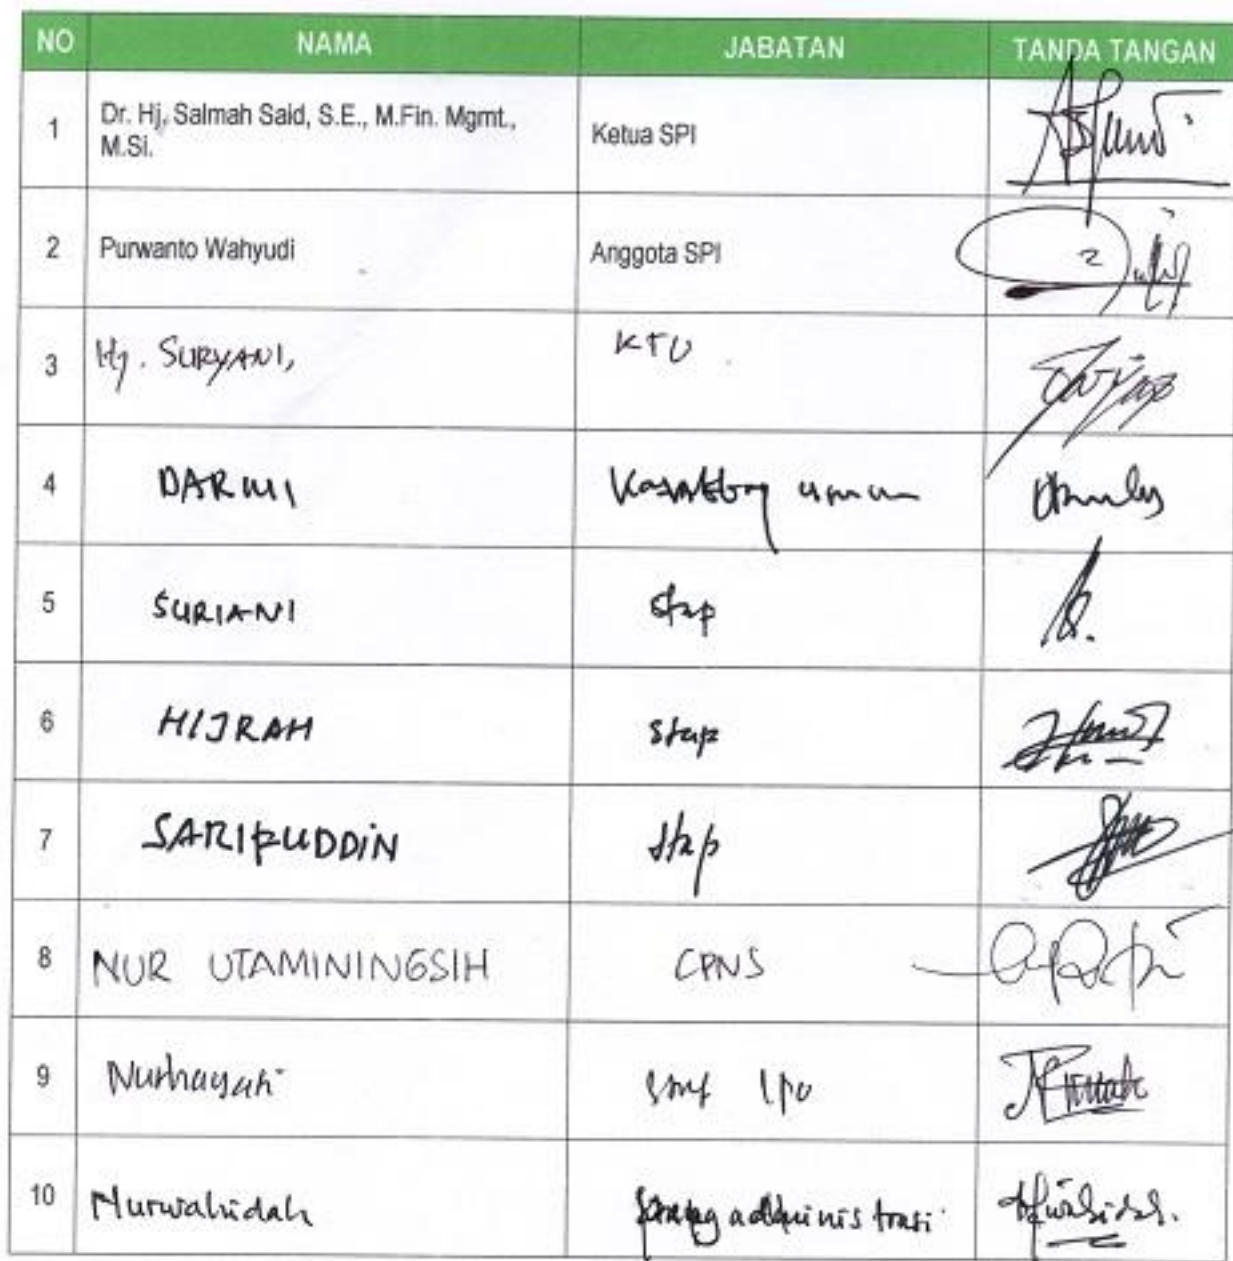 NO NAMA JABATAN TANDA TANGAN
1 Dr. Hj. Salmah Said, S.E., M.Fin. Mgmt.,
M.Si. Ketua SPI
2 Purwanto Wahyudi Anggota SPI
3 Hj. SURYANI, KTU
4 DARMI umum
5 SURIANI stap
6 HIJRAH stap
7 SARIFUDDIN stap
8 NUR UTAMININGSIH CPNS
9 Nurhayati
10 Nurwahidah administrasi